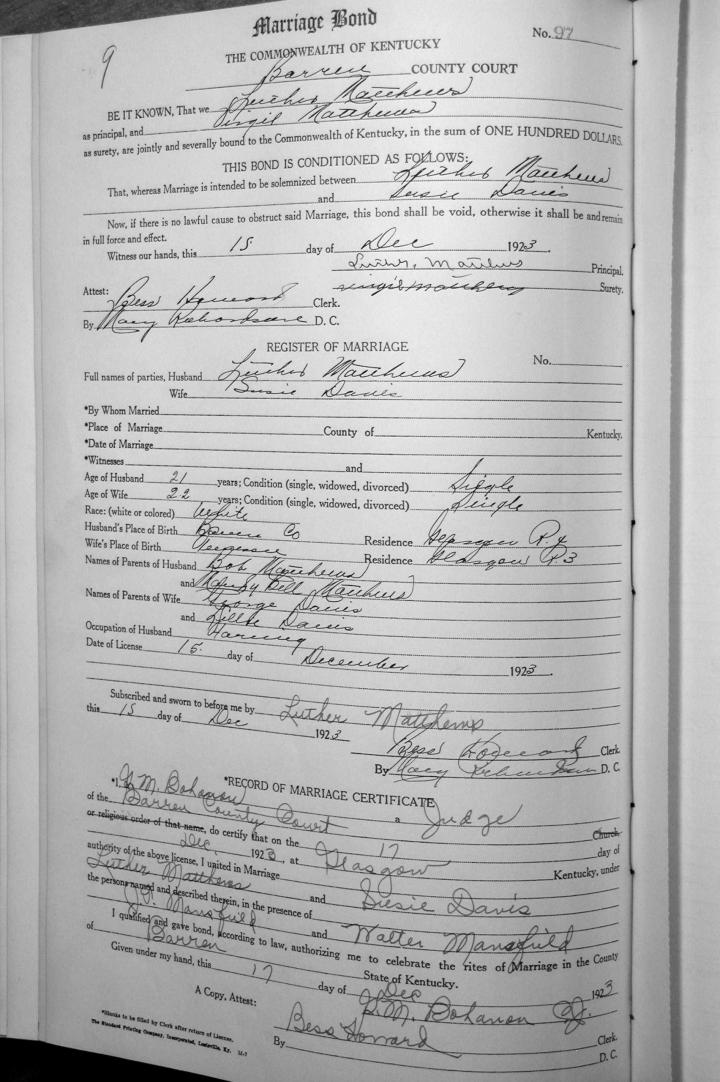 Marriage Bond
No. 97
9
THE COMMONWEALTH OF KENTUCKY
Barren COUNTY COURT
BE IT KNOWN, That we Luther Matthews
as principal, and Virgil Matthews
as surety, are jointly and severally bound to the Commonwealth of Kentucky, in the sum of ONE HUNDRED DOLLARS.
THIS BOND IS CONDITIONED AS FOLLOWS:
That, whereas Marriage is intended to be solemnized between Luther Matthews
and Susie Davis
Now, if there is no lawful cause to obstruct said Marriage, this bond shall be void, otherwise it shall be and remain
in full force and effect.
Witness our hands, this 15 day of Dec 1923
Luther, Matthews Principal.
Virgil Matthews Surety.
Attest: Bess Howard Clerk.
By Mary Richardson D. C.
REGISTER OF MARRIAGE
No.
Full names of parties, Husband Luther Matthews
Wife Susie Davis
*By Whom Married
*Place of Marriage County of Kentucky.
*Date of Marriage
*Witnesses and
Age of Husband 21 years; Condition (single, widowed, divorced) Single
Age of Wife 22 years; Condition (single, widowed, divorced) Single
Race: (white or colored) White
Husband's Place of Birth Barren Co Residence Glasgow R. 4
Wife's Place of Birth Residence Glasgow R. 3
Names of Parents of Husband Bob Matthews
and Bell Matthews
Names of Parents of Wife George Davis
and Davis
Occupation of Husband Farming
Date of License 15. day of December 1923.
Subscribed and sworn to before me by Luther Matthews
this 15 day of Dec 1923
Bess Howard Clerk
By Mary Richardson D. C.
*RECORD OF MARRIAGE CERTIFICATE
*I, G. M. Bohanon a Judge
of the Barren County Court Church
or religious order of that name, do certify that on the 17 day of
Dec. 1923, at Glasgow Kentucky, under
authority of the above license, I united in Marriage
Luther Matthews and Susie Davis
the persons named and described therein, in the presence of
Mansfield and Walter Mansfield
I qualified and gave bond, according to law, authorizing me to celebrate the rites of Marriage in the County
of Barren State of Kentucky.
Given under my hand, this 17 day of Dec 1923
G. M. Bohanon J.
A Copy, Attest: Bess Howard Clerk.
By D. C.
*Blanks to be filled by Clerk after return of License.
The Standard Printing Company, Incorporated, Louisville, Ky.